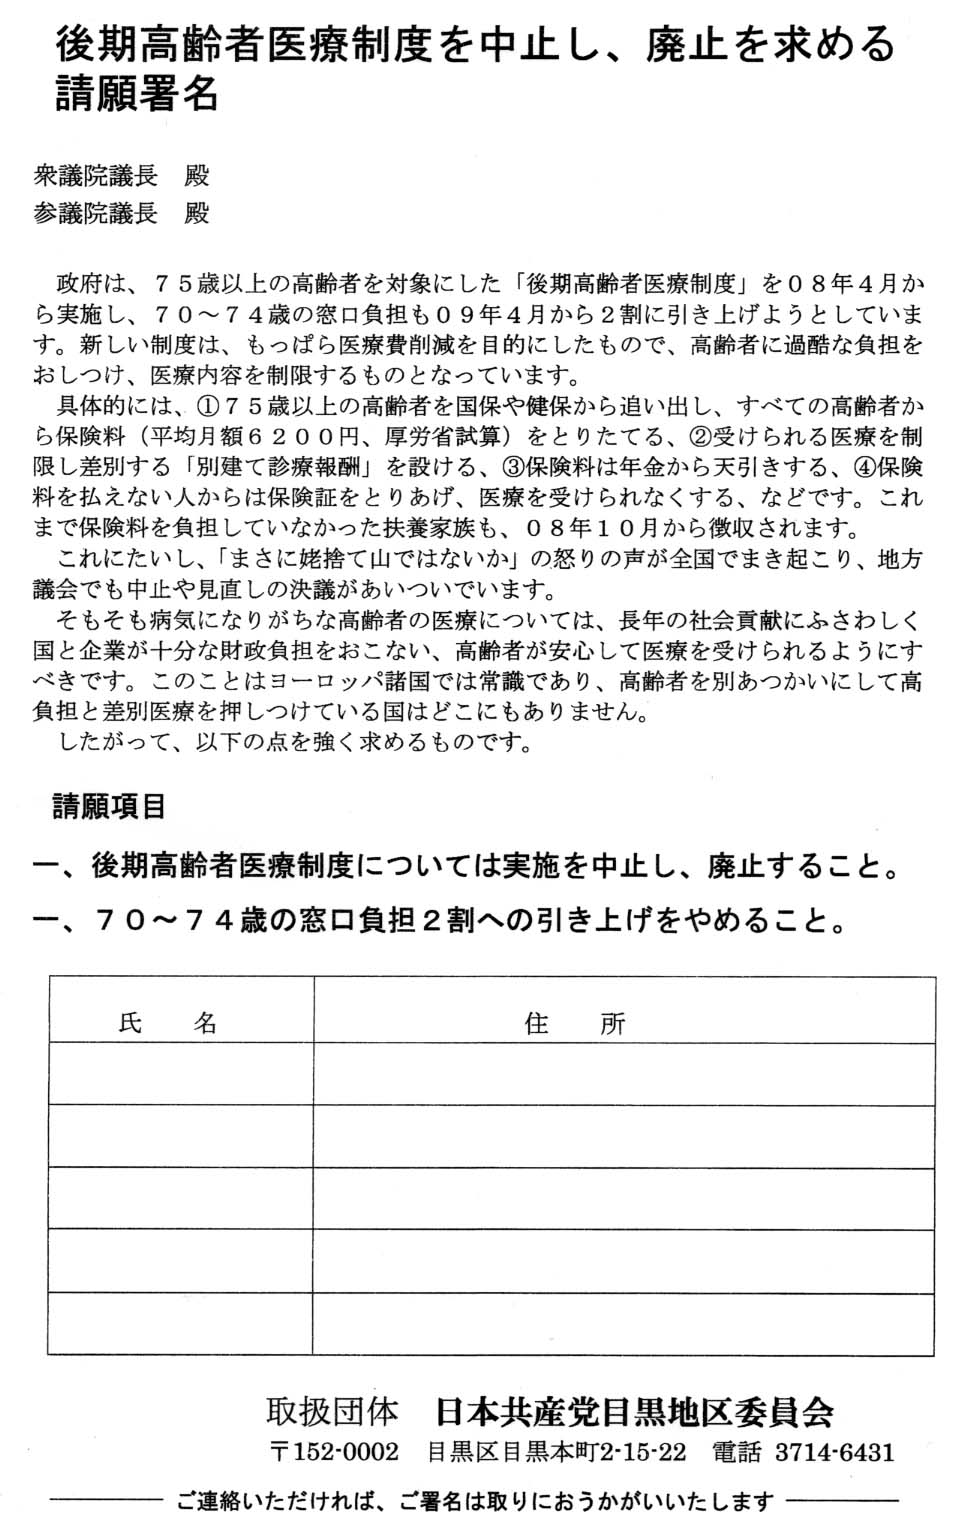 後期高齢者医療制度を中止し、廃止を求める
請願署名
衆議院議長　殿
参議院議長　殿
　政府は、７５歳以上の高齢者を対象にした「後期高齢者医療制度」を０８年４月か
ら実施し、７０～７４歳の窓口負担も０９年４月から２割に引き上げようとしていま
す。新しい制度は、もっぱら医療費削減を目的にしたもので、高齢者に過酷な負担を
おしつけ、医療内容を制限するものとなっています。
　具体的には、①７５歳以上の高齢者を国保や健保から追い出し、すべての高齢者か
ら保険料（平均月額６２００円、厚労省試算）をとりたてる、②受けられる医療を制
限し差別する「別建て診療報酬」を設ける、③保険料は年金から天引きする、④保険
料を払えない人からは保険証をとりあげ、医療を受けられなくする、などです。これ
まで保険料を負担していなかった扶養家族も、０８年１０月から徴収されます。
　これにたいし、「まさに姥捨て山ではないか」の怒りの声が全国でまき起こり、地方
議会でも中止や見直しの決議があいついでいます。
　そもそも病気になりがちな高齢者の医療については、長年の社会貢献にふさわしく
国と企業が十分な財政負担をおこない、高齢者が安心して医療を受けられるようにす
べきです。このことはヨーロッパ諸国では常識であり、高齢者を別あつかいにして高
負担と差別医療を押しつけている国はどこにもありません。
　したがって、以下の点を強く求めるものです。
請願項目
一、後期高齢者医療制度については実施を中止し、廃止すること。
一、７０～７４歳の窓口負担２割への引き上げをやめること。
氏　　名　　住　　所
取扱団体　日本共産党目黒地区委員会
〒152-0002　目黒区目黒本町2-15-22　電話 3714-6431
ご連絡いただければ、ご署名は取りにおうかがいいたします